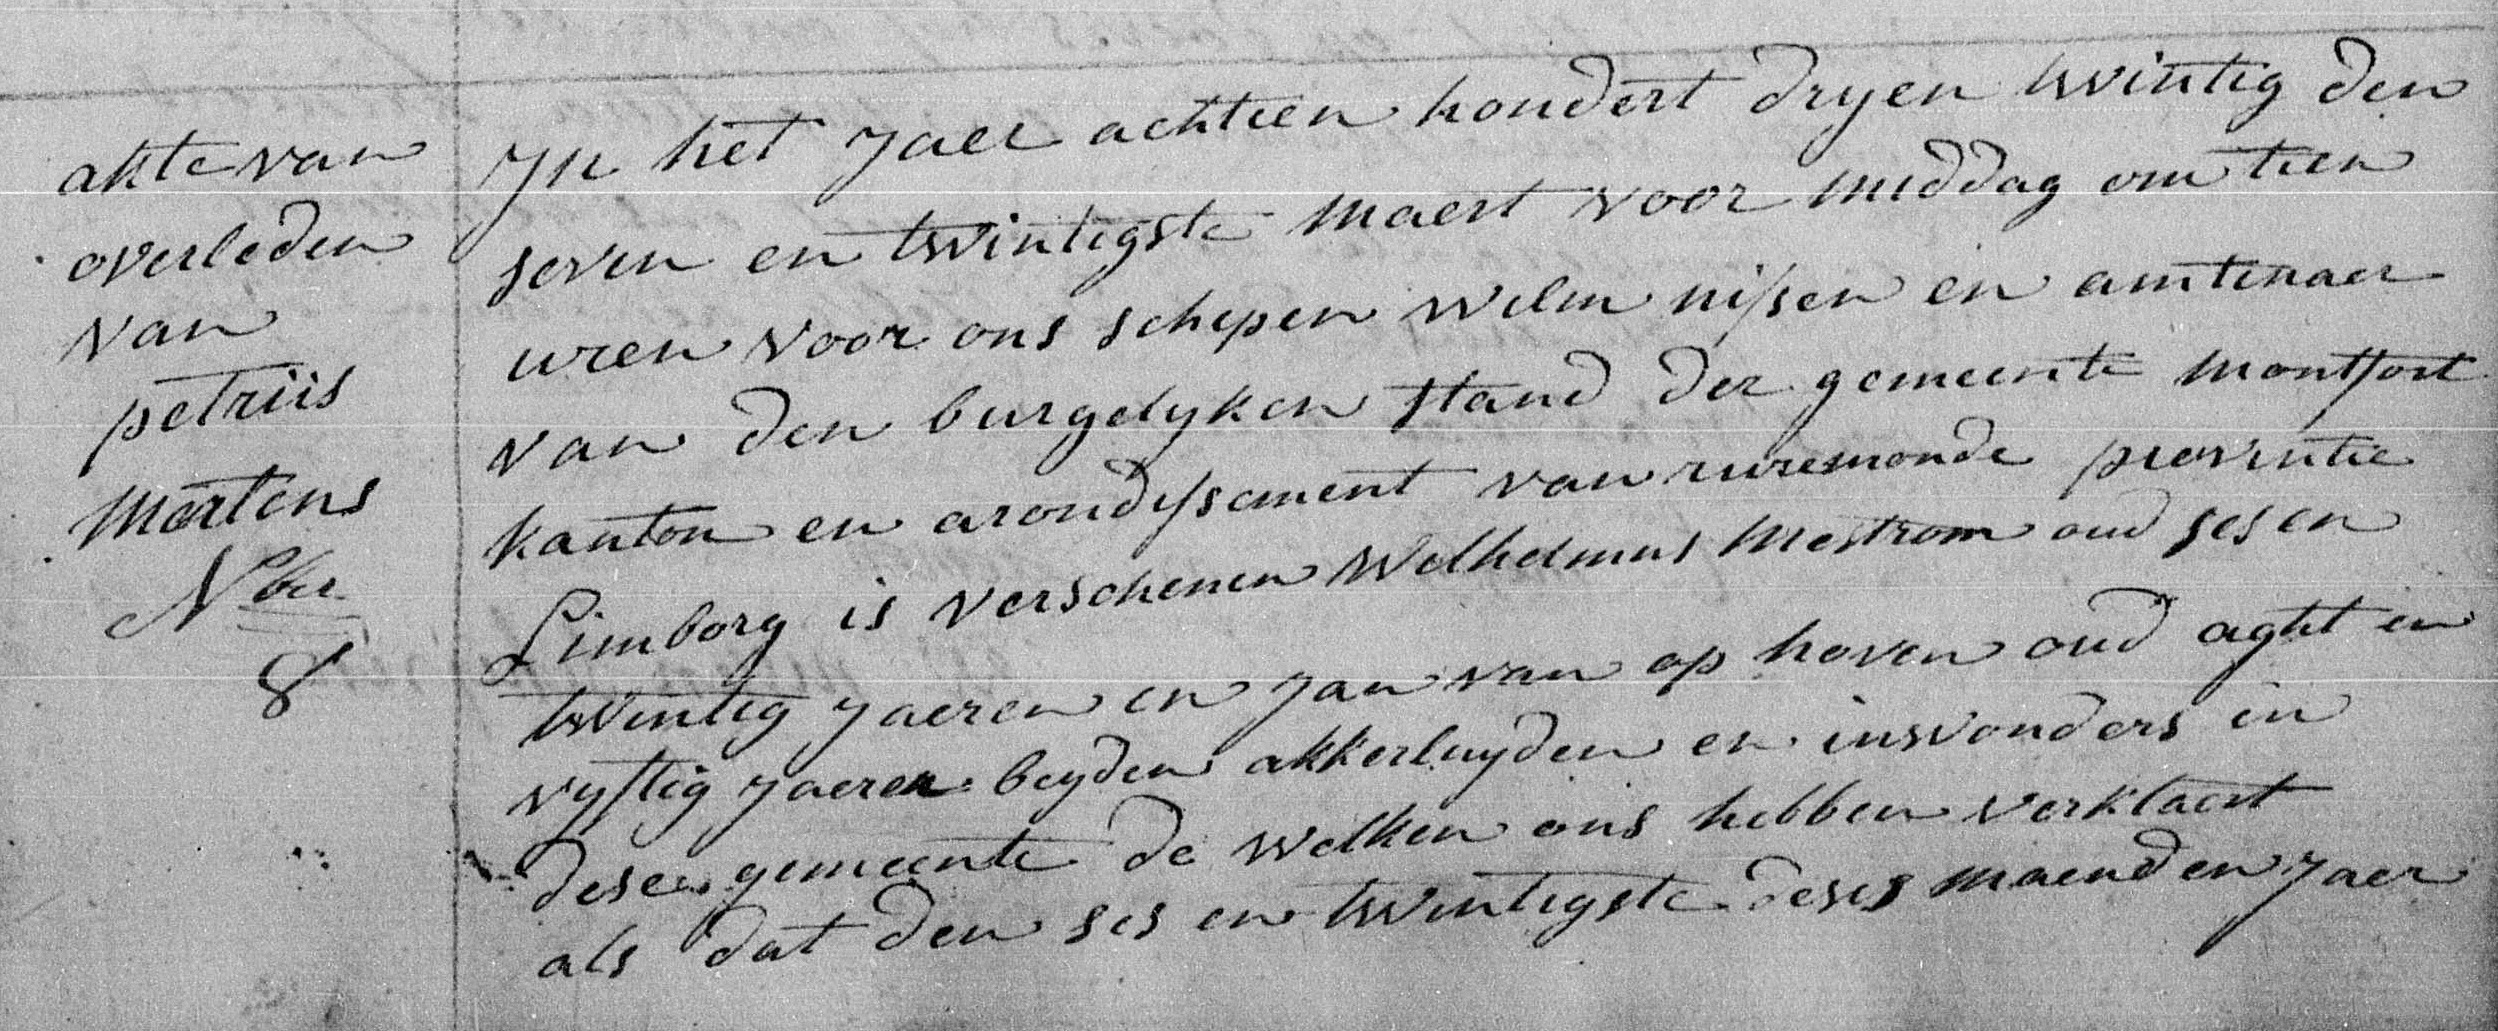 akte van
overleden
van
petrus
Mertens
Nber
8
Jn het Jaer achtien hondert dryen twintig den
seven en twintigste Maert voor middag om tien
uren voor ons schepen Wilm nissen en amtenaer
van den burgelyken stand der gemeente montfort
kanton en arondissement van ruremonde provintie
Limborg is verschenen Wilhelmus Mestrom oud ses en
twintig Jaeren en Jan van op hoven oud aght en
vyftig Jaeren beyden akkerluyden en inwonders in
dese gemeente de welken ons hebben verklaert
als dat den ses en twintigste deses maend en Jaer